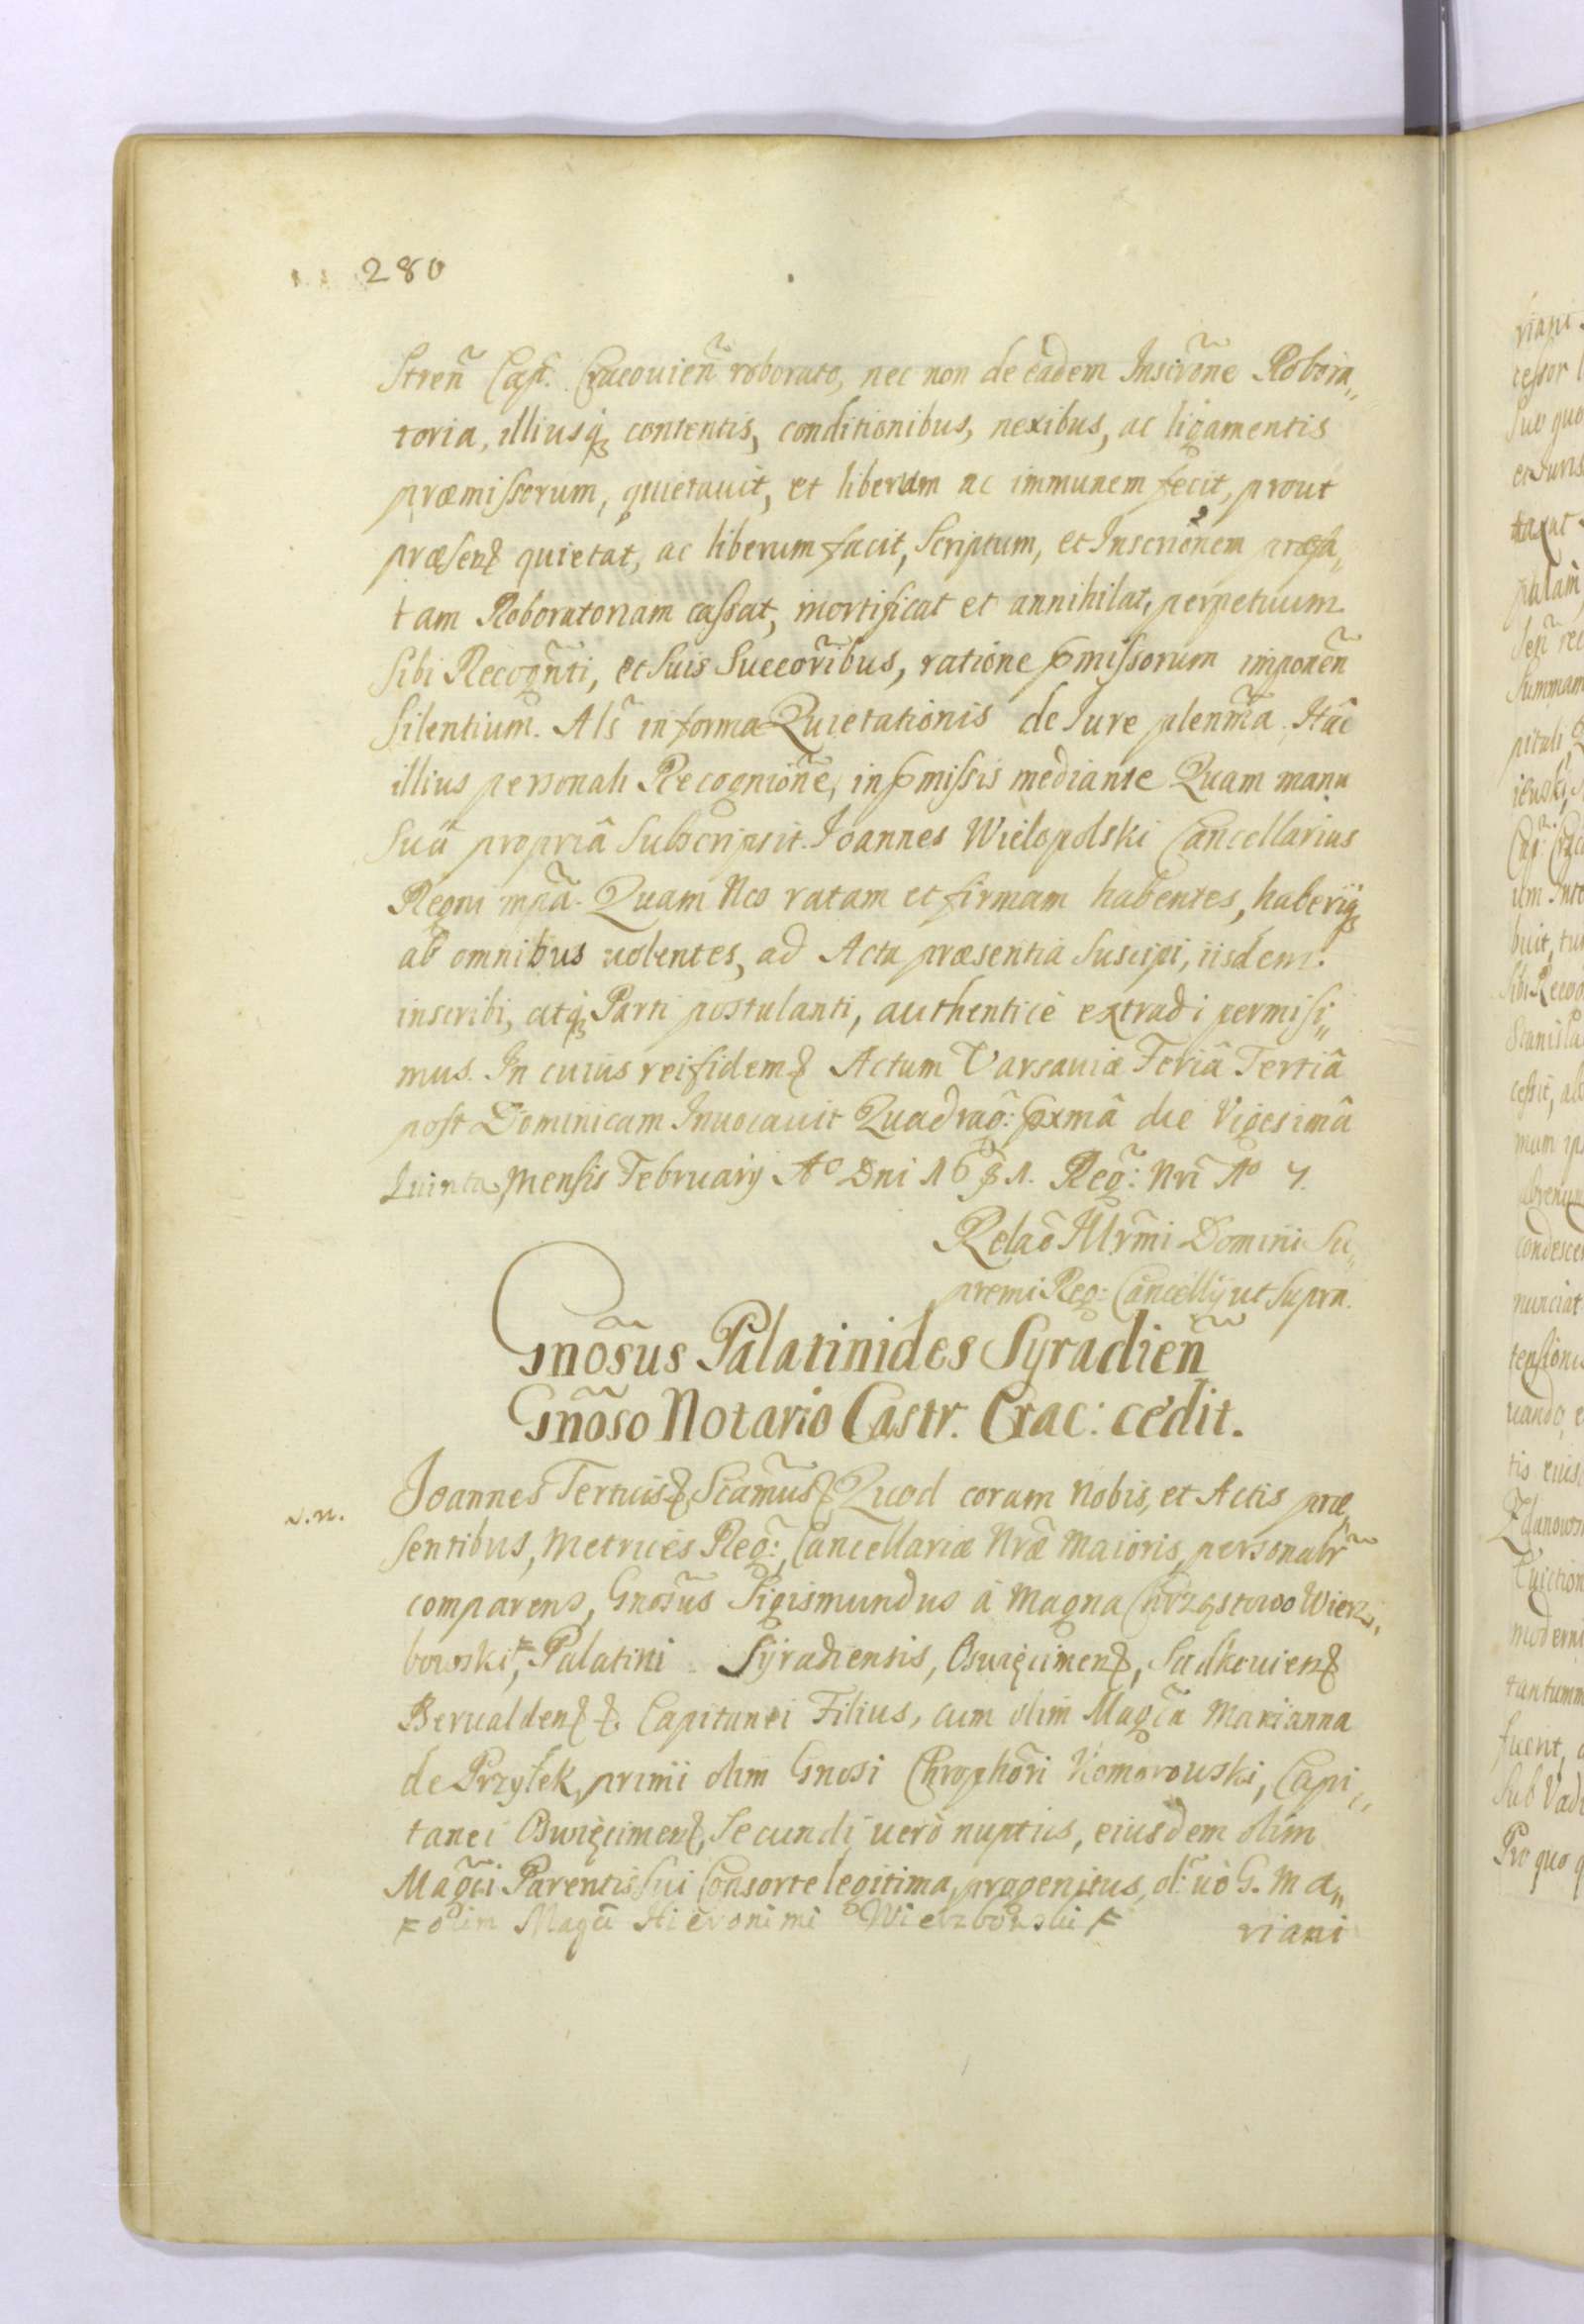 280
Streñ Capt. Cracovieñ roborato, nec non de eâdem Inscrõne Robora„
toria, illiusq; contentis, conditionibus, nexibus, ac ligamentis
præmissorum, quietavit, et liberum ac immunem fecit, prout
præsenꝭ quietat, ac liberum facit, Scriptum, et Inscriõnem præfa„
tam Roboratoriam cassat, mortificat et annihilat, perpetuum
sibi Recogñti, et Suis Succõribus, ratione p̃missorum imponeñ
silentium. Als̃ in forma Quietationis de Iure pleñma. Hãc
illius personali Recogniõne, in p̃missis mediante Quam manu
Suâ propriâ Subscripsit. Joannes Wielopolski Cancellarius
Regni mpã. Quam Nos ratam et firmam habentes, haberiq;
ab omnibus volentes, ad Acta præsentia Suscipi, iisdem.
inscribi, atq; Parti postulanti, authenticè extradi permisi„
mus. In cuius rei fidemꝭ Actum Varsaviæ Feriâ Tertiâ
post Dominicam Invocavit Quadraõ: pxmâ die Vigesimâ
Quinta Mensis February Aº Dni 1681. Reg: Nri Aº 7.
Relaõ Illr̃mi Domini Su„
premi Reg: Cancellÿ ut Supra.
Gnõsus Palatinides Syradieñ
Gnõso Notario Castr. Crac: cedit.
v.n.
Joannes Tertiusꝭ Scam̃usꝭ Quod coram Nobis, et Actis præ„
sentibus, Metrices Reg: Cancellariæ Nræ Maioris personalr̃
comparens, Gnõsus Sigismundus à Magna Chrząstowo Wierz„
bowski,F Palatini Syradiensis, Oswięcimenꝭ, Sadkovienꝭ
Bervaldenꝭ ꝭ. Capitanei Filius, cum olim Magc̃a Marianna
de Przyłek, primi olim Gnosi Chrophõri Komorowski, Capi„
tanei Oswięcimenꝭ, Secundi verò nuptiis, eiusdem olim
Magc̃i Parentis Sui Consorte legitima, progenitus, ol: uõ G. Ma„
F olim Magci Hieronimi Wierzbowski F
riani